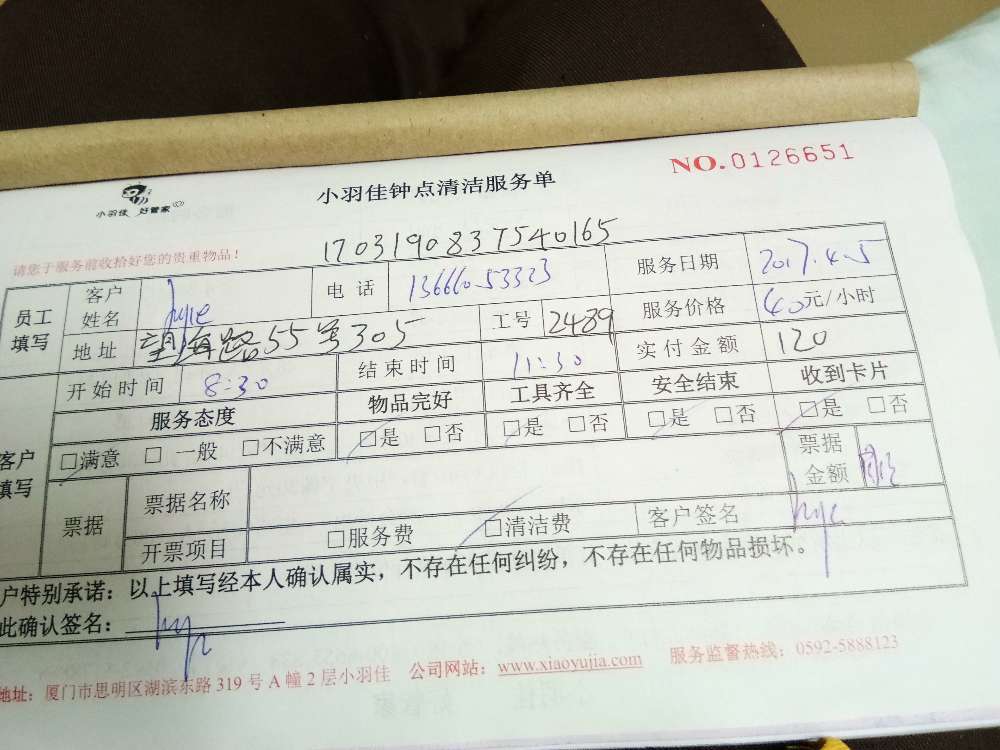 NO.0126651
小羽佳 好管家
小羽佳钟点清洁服务单
请您于服务前收拾好您的贵重物品！
1703190837540165
员工填写 客户姓名 电话 服务日期 2017.4.5
地址 望海路55号305 工号 2489 服务价格 40元/小时
开始时间 8:30 结束时间 11:30 实付金额 120
服务态度 物品完好 工具齐全 安全结束 收到卡片
客户填写 □满意 □一般 □不满意 □是 □否 □是 □否 □是 □否 □是 □否
票据 票据名称 票据金额
开票项目 □服务费 □清洁费 客户签名
户特别承诺：以上填写经本人确认属实，不存在任何纠纷，不存在任何物品损坏。
此确认签名：
地址：厦门市思明区湖滨东路319号A幢2层小羽佳 公司网站：www.xiaoyujia.com 服务监督热线：0592-5888123